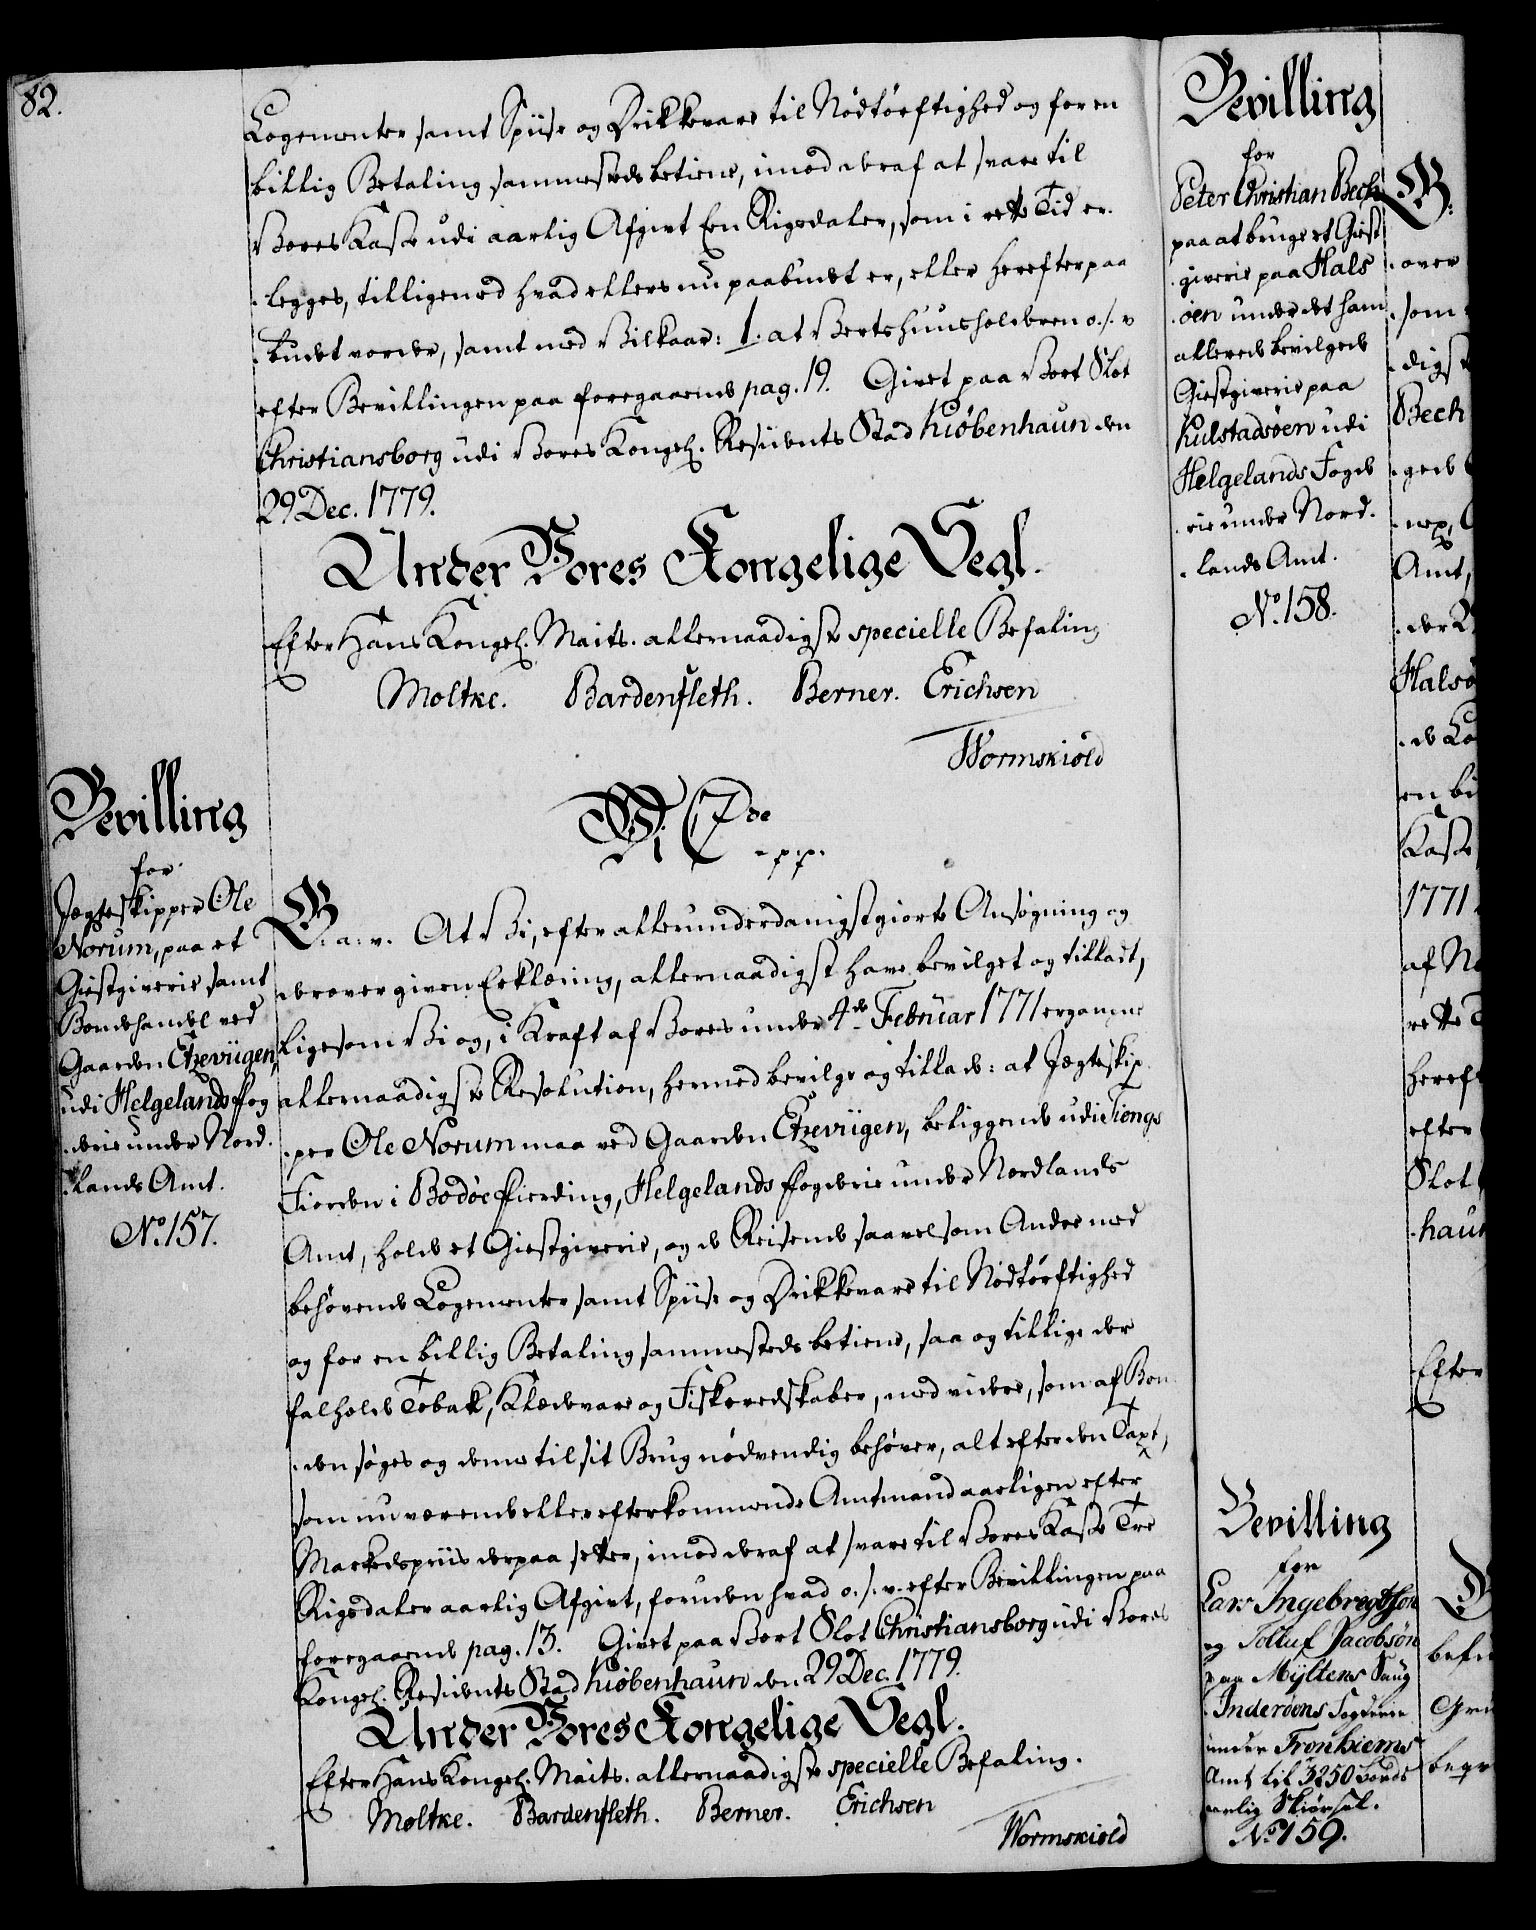 82.
Logementer samt Spiise og Drikkevare til Nødtørftighed og for en
billig Betaling sammesteds betiene, imod deraf at svare til
Vores Kasse udi aarlig Afgivt Een Rigsdaler, som i rette Tid er-
legges, tilligemed hvad ellers nu paabudet er, eller herefter paa
budet vorder, samt med Vilkaar: 1. at Vertshuusholderen o. s. v
efter Bevillingen paa foregaaende pag. 19. Givet paa Vort Slot
Christiansborg udi Vores Kongel. Residents Stad Kiøbenhaun den
29 Dec. 1779.
Under Vores Kongelige Segl.
Efter Hans Kongel. Maits. allernaadigste specielle Befaling
Moltke. Bardenfleth. Berner. Erichsen
Wormskiold
Bevilling
for
Jægteskipper Ole
Norum, paa et
Giestgiverie samt
Bondehandel ved
Gaarden Etzeviigen,
udi Helgelands Fog
derie under Nord-
lands Amt.
No. 157.
Vi C 7de
- p. p.
G. a. v. At Vi, efter allerunderdanigst giorte Ansøgning og
derover given Erklæring, allernaadigst have bevilget og tilladt,
Ligesom Vi og, i Kraft af Vores under 4de Februar 1771 ergangne
allernaadigste Resolution, hermed bevilge og tillade: at Jægteskip-
per Ole Norum maa ved Gaarden Etzeviigen, beliggende udi Tiongs
Fiorden i Bodøe Fierding, Helgelands Fogderie under Nordlands
Amt, holde et Giestgiverie, og de Reisende saavelsom Andre med
behøvende Logementer samt Spiise og Drikkevare til Nødtørftighed
og for en billig Betaling sammesteds betiene, saa og tillige der
falholde Tobak, Klædevare og Fiskeredskaber, med videre, som af Bon-
den søges og denne til sit Brug nødvendig behøver, alt efter den Taxt,
som nuværende eller efterkommende Amtmand aarligen efter
Markedspriis derpaa setter, imod deraf at svare til Vores Kasse Tre
Rigsdaler aarlig Afgivt, foruden hvad o. s. v. efter Bevillingen paa
foregaaende pag. 13. Givet paa Vort Slot Christiansborg udi Vores
Kongel. Residents Stad Kiøbenhaun den 29 Dec. 1779.
Under Vores Kongelige Segl.
Efter Hans Kongel. Maits. allernaadigste specielle Befaling.
Moltke. Bardenfleth. Berner. Erichsen
Wormskiold
Bevilling
for
Peter Christian Bech
paa at bruge et Giest
giverie paa Hals
øen under det ham
allerede bevilgede
Giestgiverie paa
Kulstadsøen udi
Helgelands Foged
rie under Nord-
lands Amt.
No. 158.
Bevilling
for
Lars Ingebregtson
og Tolluf Jacobsøn
paa Mÿltens Saug
Inderøens Fogderie
under Tronhiems
Amt til 3250 Bords
aarlig Skiørsel.
No. 159.
G:
over
som
digst
Bech
gede
Amt,
der
Halsø
de Lo
en bi
Kasse
1771
af No
rette T
heref
efter
Slot
haun
Efter
befu
Gru
begr